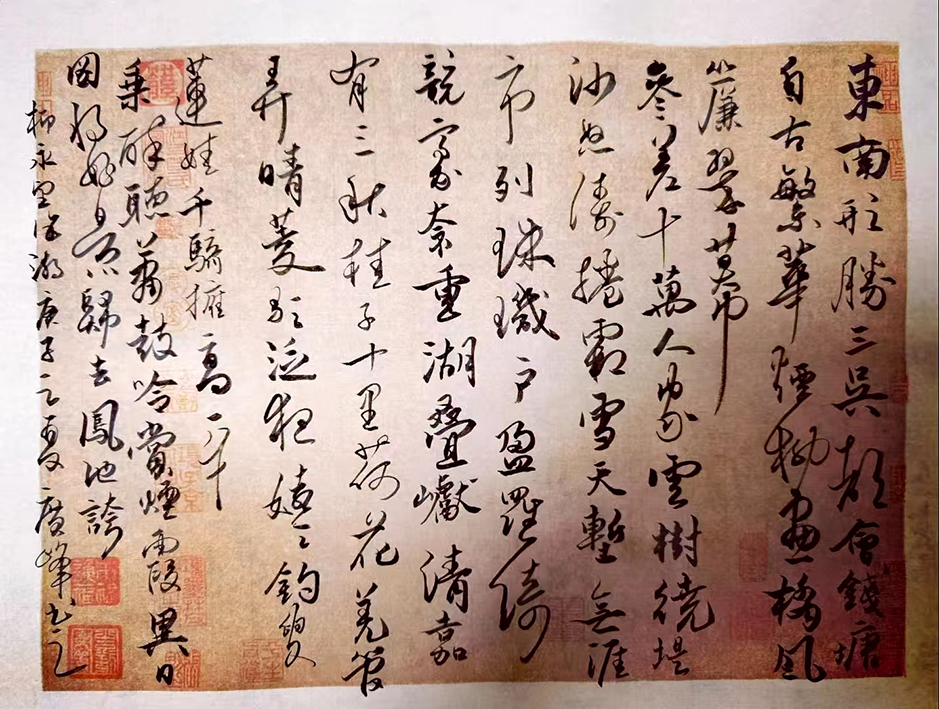 東南形勝三吳都會錢塘
自古繁華煙柳畫橋風
簾翠幕
參差十萬人家雲樹繞堤
沙怒濤捲霜雪天塹無涯
市列珠璣戶盈羅綺
競豪奢重湖疊巘清嘉
有三秋桂子十里荷花羌管
弄晴菱歌泛夜嬉々釣叟
蓮娃千騎擁高牙
乘醉聽蕭鼓吟賞煙霞異日
圖將好景歸去鳳池誇
柳永望海潮庚子之夏廣峰書之